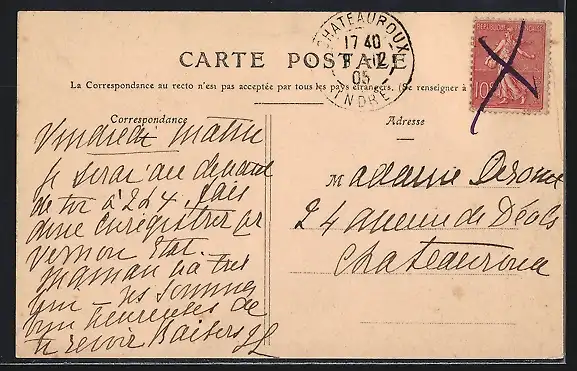 CHATEAUROUX
17 40
9 - 12
05
INDRE
REPUBLIQUE FRANÇAISE
10
CARTE POSTALE
La Correspondance au recto n'est pas acceptée par tous les pays étrangers. (Se renseigner à
Correspondance
Adresse
Vendredi matin
je serai au devant
de toi à 2 h 4. fais
donc enregistrer pr
Vernon Est.
Maman va très
bien nous sommes
bien heureuses de
te revoir Baisers
Madame
24 avenue de Déols
Chateauroux